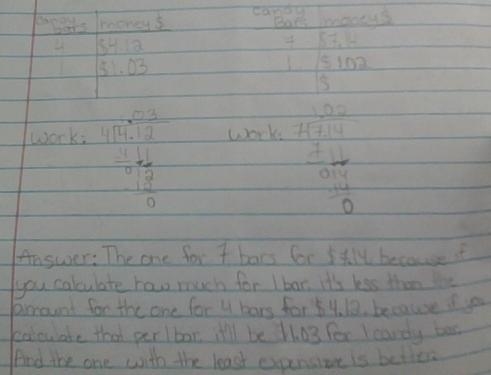 candy bars | money $    candy Bars | money $
4 | $4.12    7 | $7.14
1 | $1.03    1 | $1.02
$
1.03    1.02
Work: 4√4.12    Work: 7√7.14
4    7
012    014
12    14
0    0
Answer: The one for 7 bars for $7.14 because if
you calculate how much for 1 bar it's less than the
amount for the one for 4 bars for $4.12, because if you
calculate that per 1 bar it'll be $1.03 for 1 candy bar
And the one with the least expensive is better.